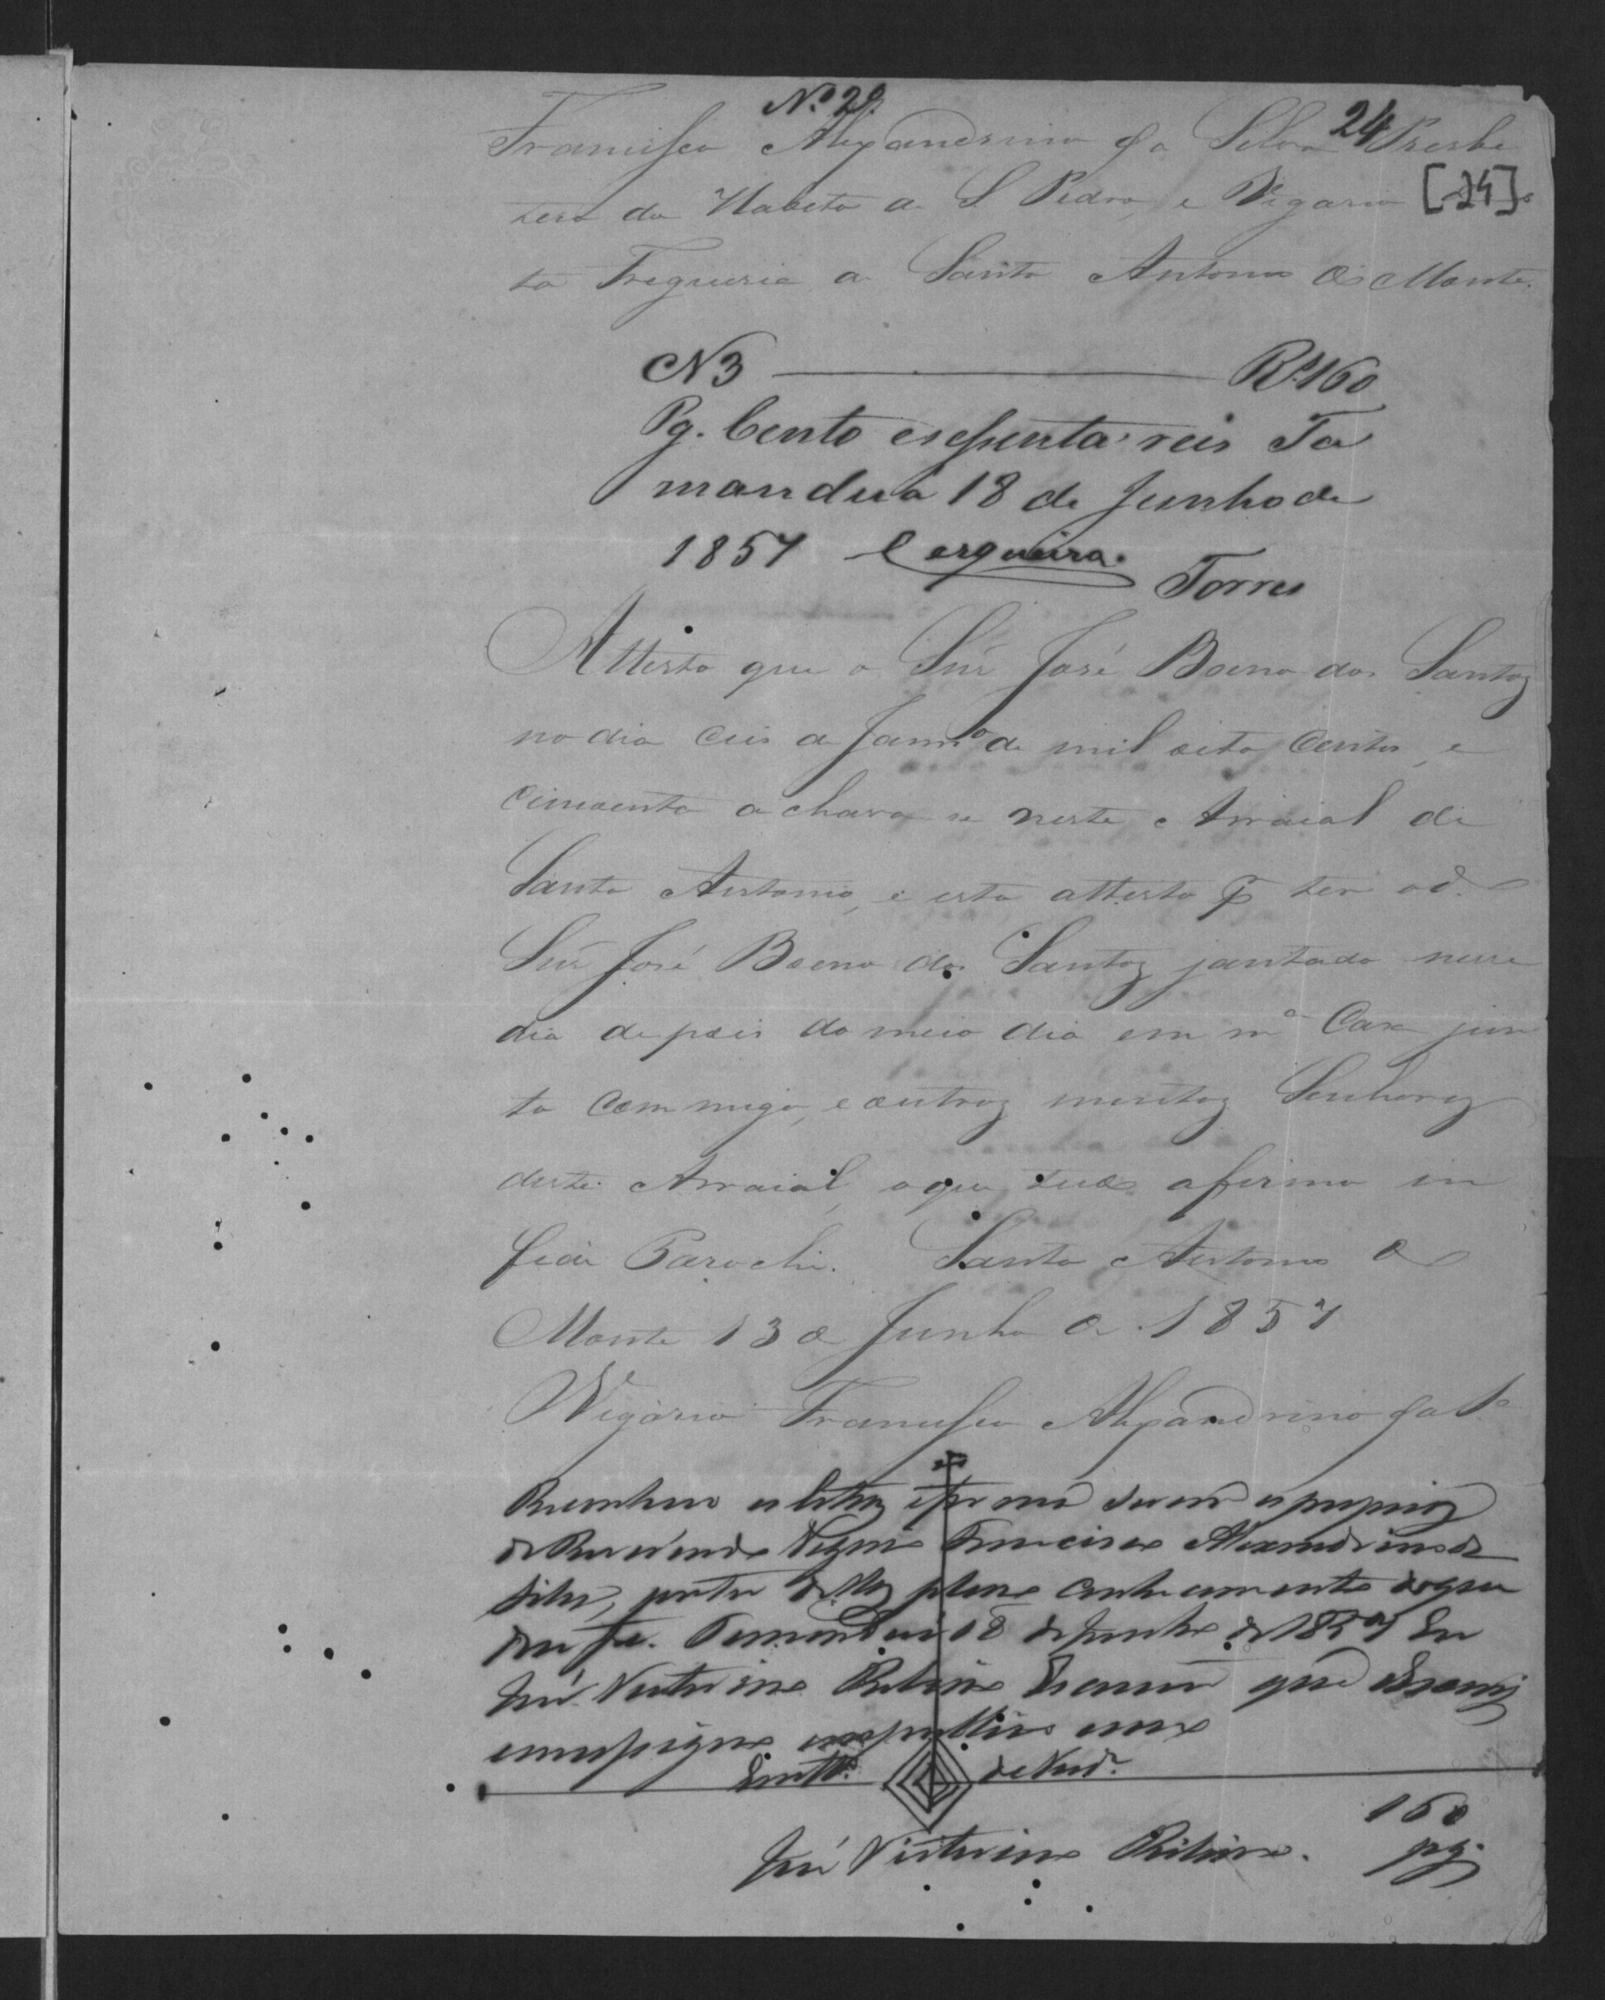 Nº 29.
24
[24]
Francisco Alexandrino da Silva Presbi
tero do Habito de S Pedro, e Vigario
ta Freguezia de Santo Antonio do Monte.
N 3 Rs 160
Pg. Cento esessenta reis Ta
manduá 18 de Junho de
1857 Cerqueira.
Torres
Attesto que o Snr José Boeno dos Santos
no dia Ceis de Janrº de mil oito Centos, e
Cincoenta achava se neste Arraial de
Santo Antonio, e isto attesto p ter o d.
Snr José Boeno dos Santos jantado nesse
dia depois do meio dia em mª Caza jun
to Commigo, e outros muitos Senhores
deste Arraial, o que tudo afirmo in
fide Parochi. Santo Antonio do
Monte 13 de Junho de 1857
Vigario Francisco Alexandrino da Sª
Reconheço a letra e firma serem as proprias
do Reverendo Vigario Francisco Alexandrino da
Silva, por ter dellas pleno conhecimento do que
dou fé. Tamanduá 18 de Junho de 1857 Eu
José Victorino Ribeiro Tabam que escrevi
e assigno em publico e razo
Em Ttº de Verdº
José Victorino Ribeiro.
160
pg.